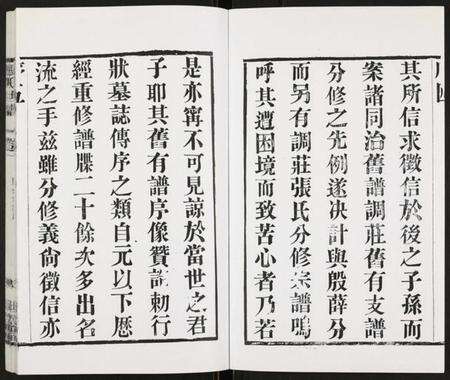 其所信求徵信於後之子孫而
案諸同治舊譜調莊舊有支譜
分修之先例遂决計與殷薛分
而另有調莊張氏分修宗譜嗚
呼其遭困境而致苦心者乃若
是亦寗不可見諒於當世之君
子耶其舊有譜序像贊誥勅行
狀墓誌傳序之類自元以下歷
經重修譜牒二十餘次多出名
流之手茲雖分修義尙徵信亦